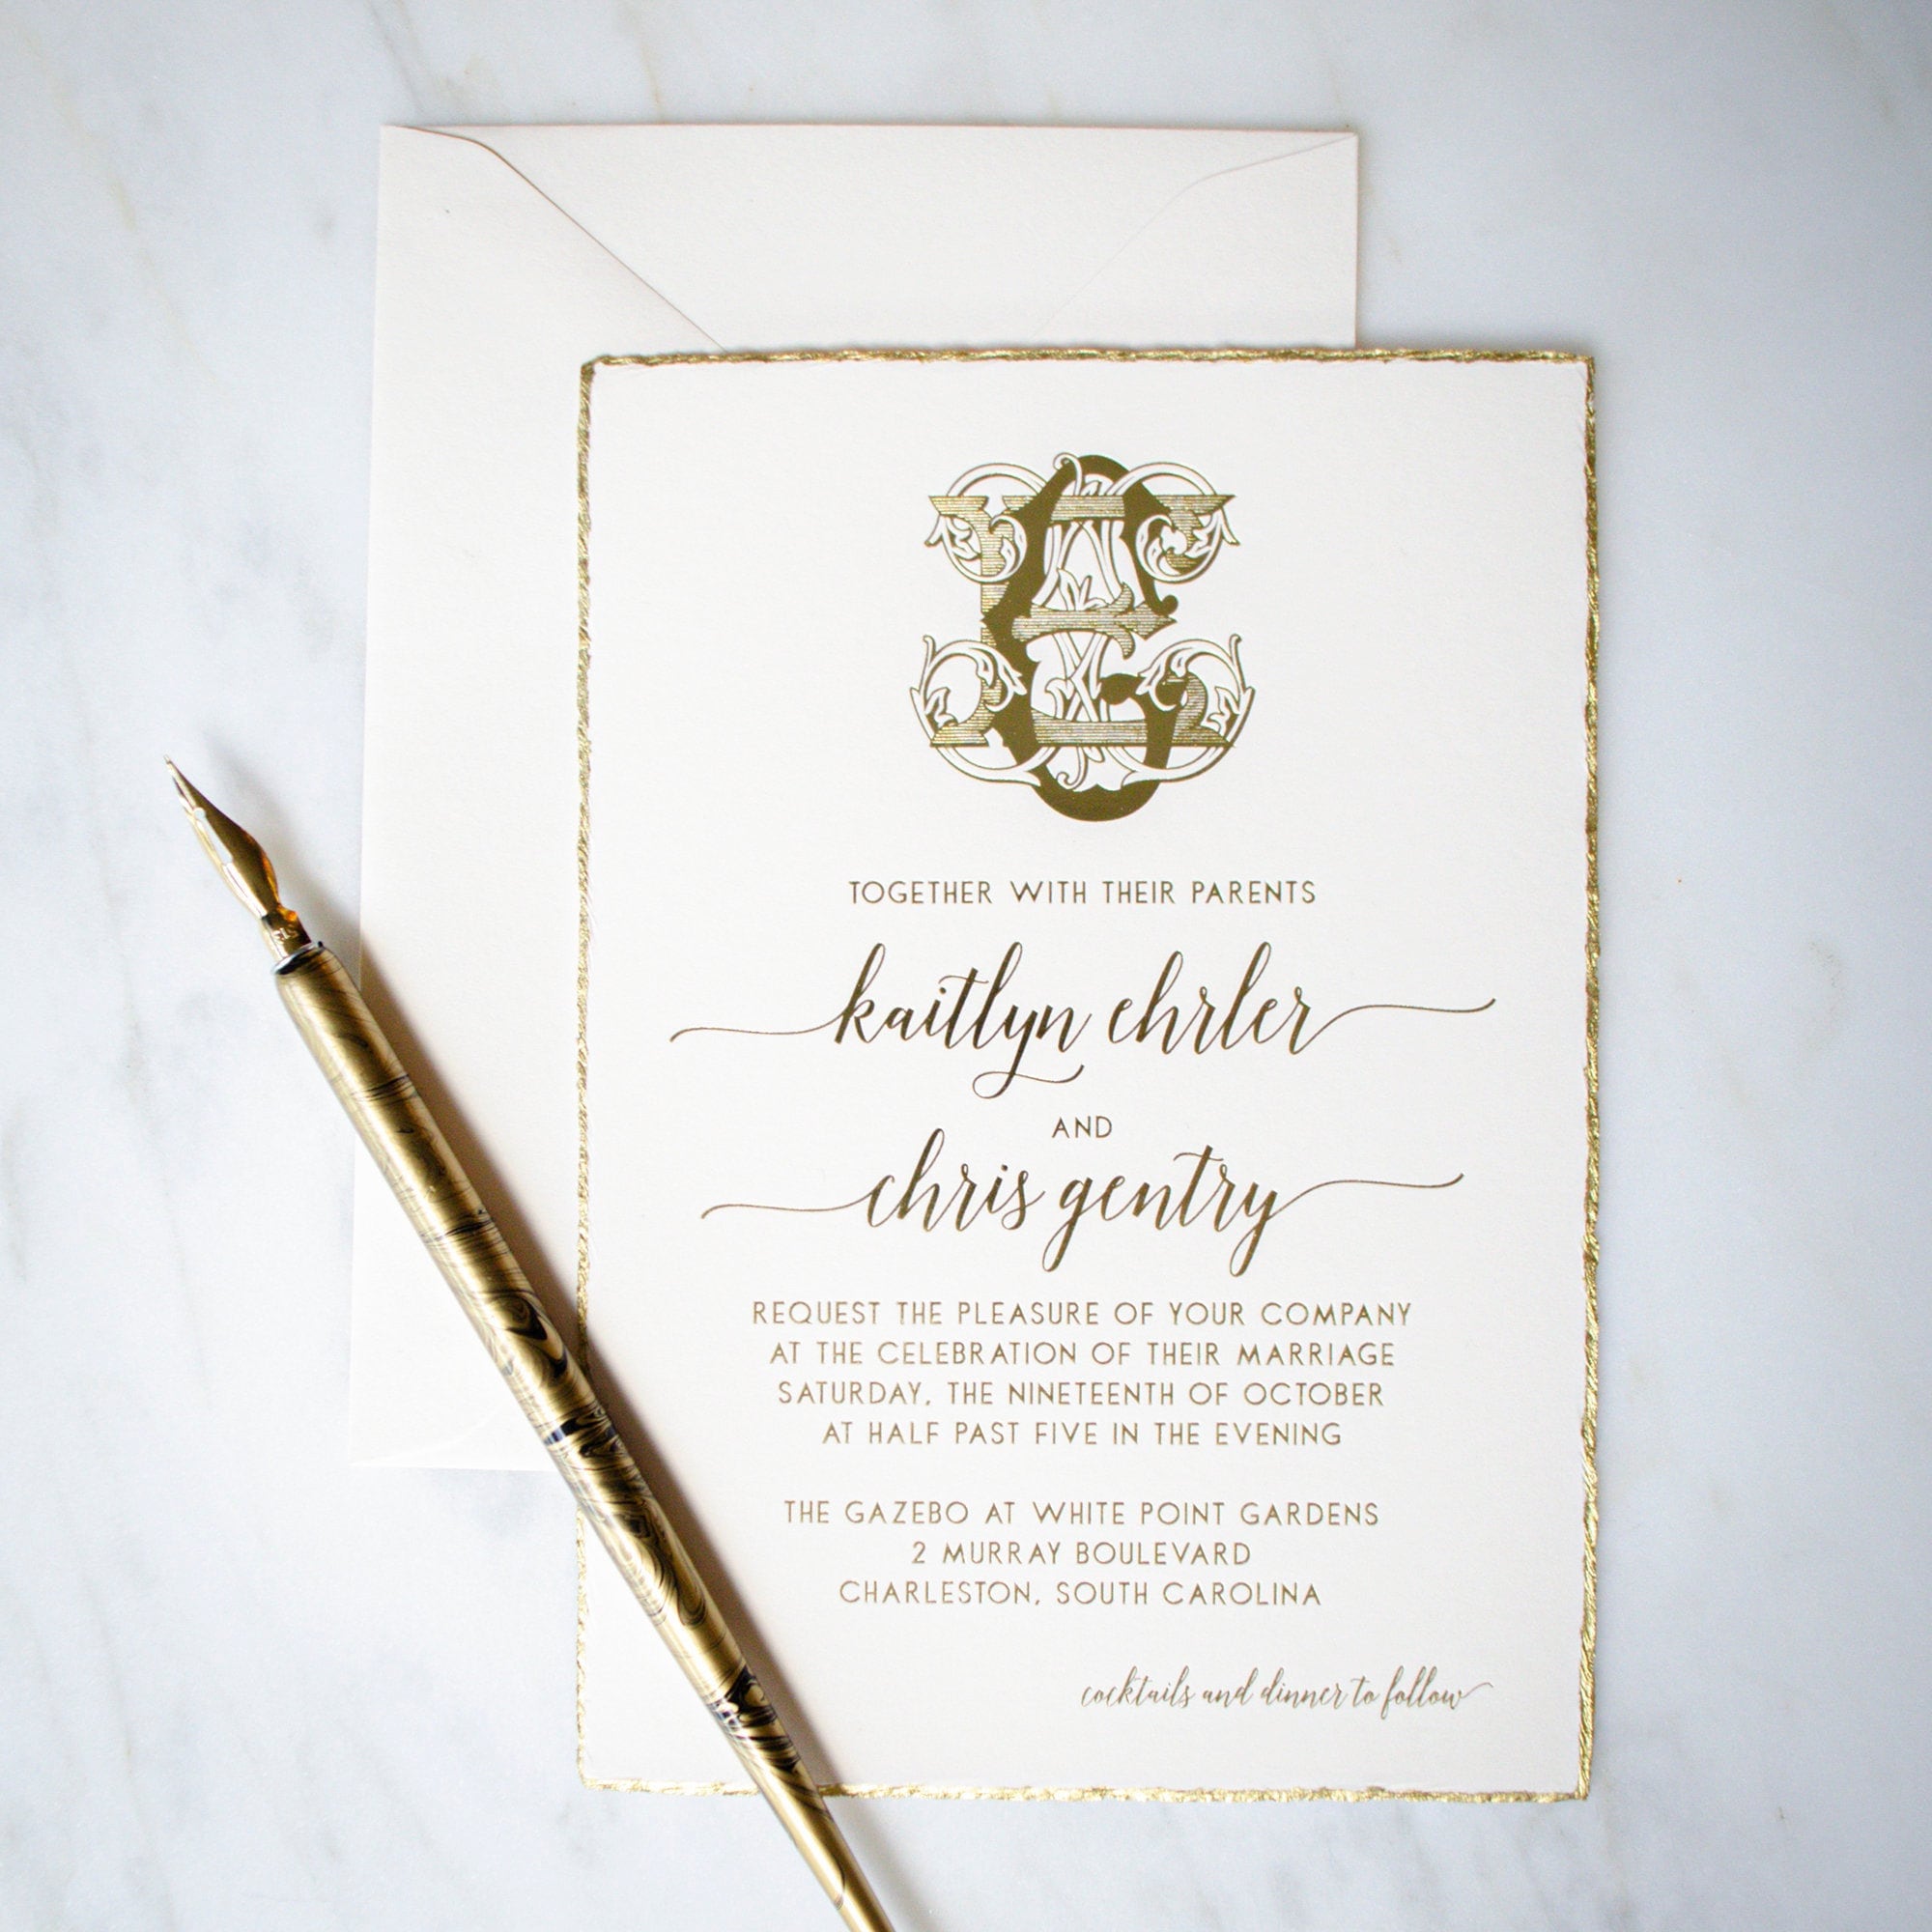 TOGETHER WITH THEIR PARENTS
kaitlyn ehrler
AND
chris gentry
REQUEST THE PLEASURE OF YOUR COMPANY
AT THE CELEBRATION OF THEIR MARRIAGE
SATURDAY, THE NINETEENTH OF OCTOBER
AT HALF PAST FIVE IN THE EVENING
THE GAZEBO AT WHITE POINT GARDENS
2 MURRAY BOULEVARD
CHARLESTON, SOUTH CAROLINA
cocktails and dinner to follow